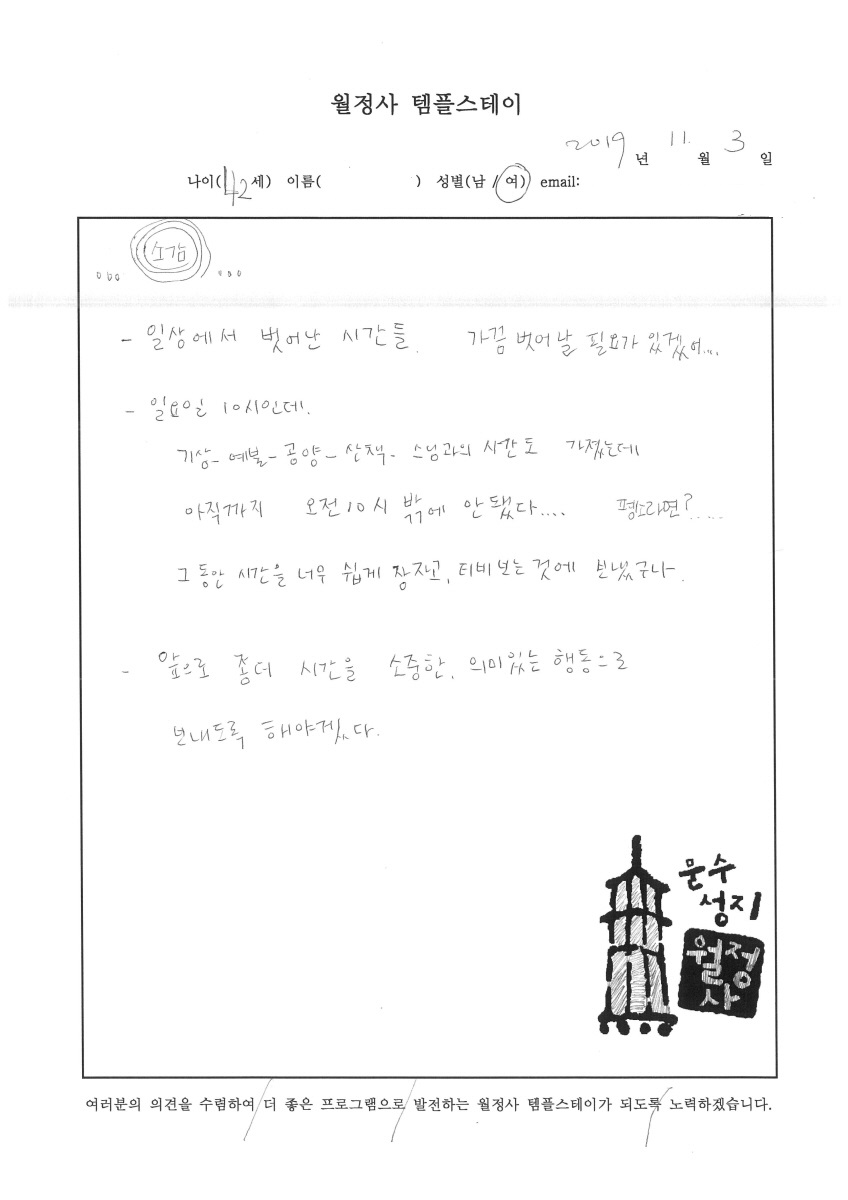 월정사 템플스테이
2019년 11월 3일
나이(42세) 이름( ) 성별(남 / 여) email:
소감
- 일상에서 벗어난 시간들. 가끔 벗어날 필요가 있겠어....
- 일요일 10시인데.
기상- 예불- 공양- 산책- 스님과의 시간도 가졌는데
아직까지 오전 10시 밖에 안됐다.... 평소라면?.....
그동안 시간을 너무 쉽게 잠자고, 티비보는 것에 보냈구나.
- 앞으로 좀더 시간을 소중한, 의미있는 행동으로
보내도록 해야겠다.
문수
성지
월정
사
여러분의 의견을 수렴하여 더 좋은 프로그램으로 발전하는 월정사 템플스테이가 되도록 노력하겠습니다.